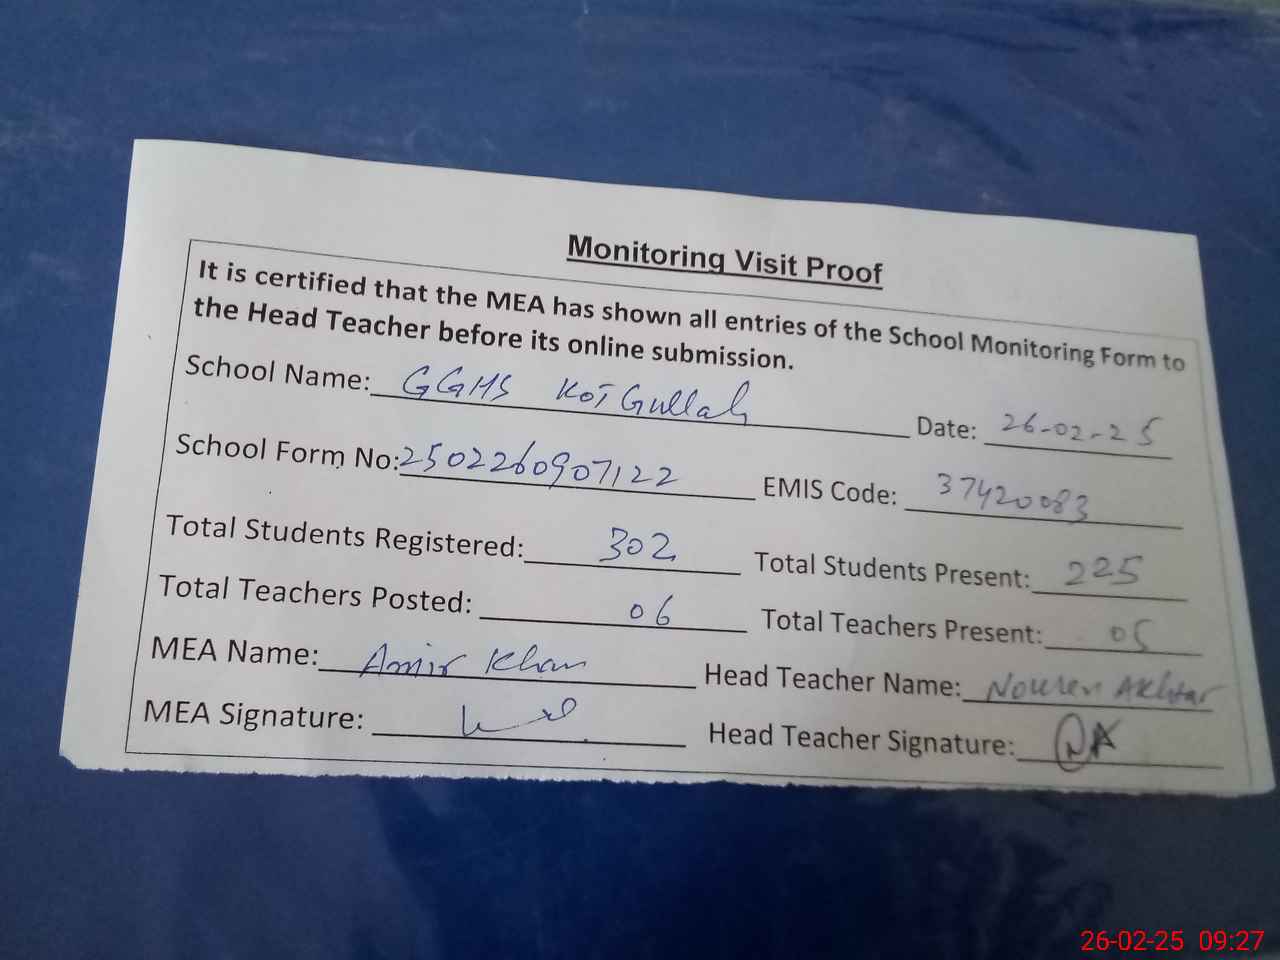 Monitoring Visit Proof
It is certified that the MEA has shown all entries of the School Monitoring Form to
the Head Teacher before its online submission.
School Name: GGHS Kot Gullah Date: 26-02-25
School Form No: 2502260907122 EMIS Code: 37420083
Total Students Registered: 302 Total Students Present: 225
Total Teachers Posted: 06 Total Teachers Present: 05
MEA Name: Amir Khan Head Teacher Name: Akhtar
MEA Signature: Head Teacher Signature: NA
26-02-25 09:27